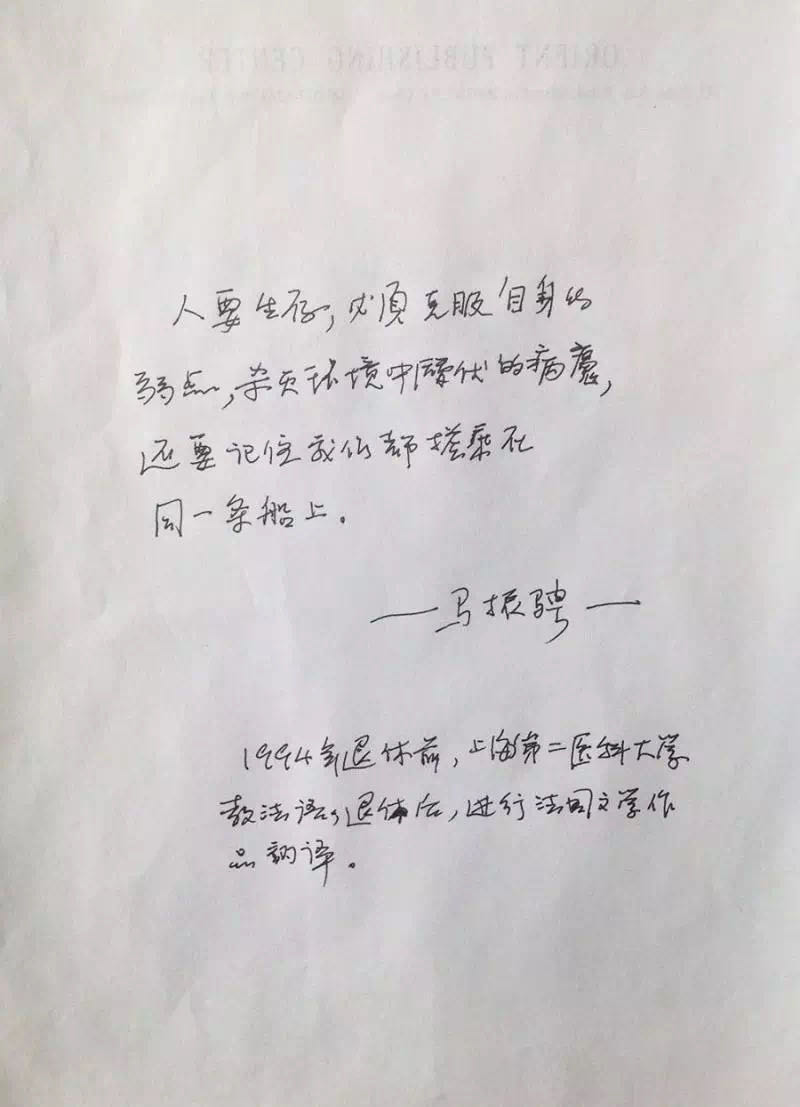 ORIENT PUBLISHING CENTER
人要生存,必须克服自身的
弱点,杀灭环境中潜伏的病魔,
还要记住我们都搭乘在
同一条船上。
——马振骋——
1994年退休前,上海第二医科大学
教法语,退休后,进行法国文学作
品翻译。